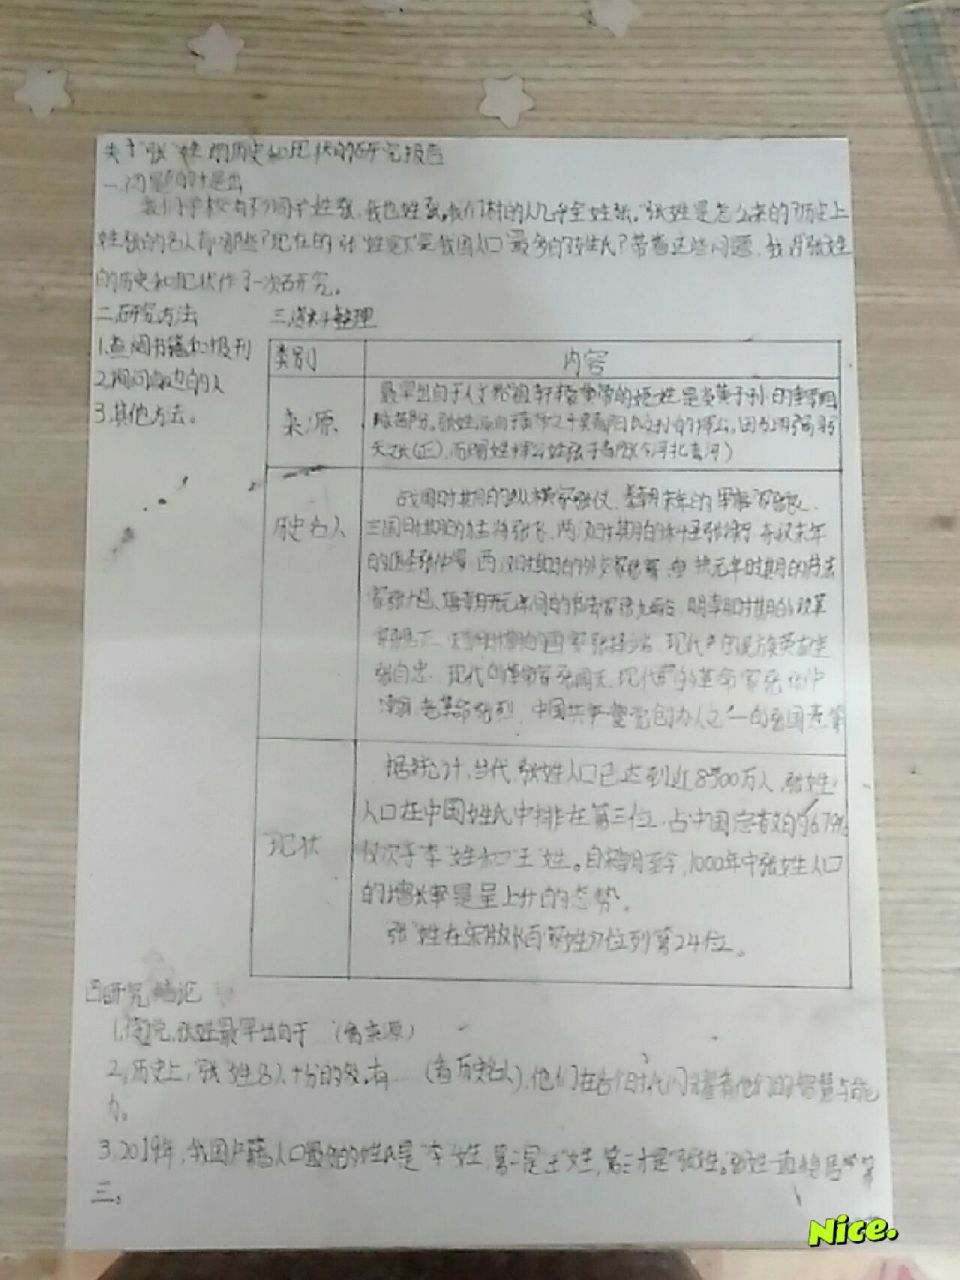 关于"张"姓的历史和现状的研究报告
一.问题的提出
我们学校有不少同学姓张,我也姓张。我们村的人几乎全姓张。"张"姓是怎么来的?历史上
姓张的名人有哪些?现在的"张"姓是不是我国人口最多的姓氏?带着这些问题,我对"张"姓
的历史和现状作了一次研究。
二.研究方法
三.资料整理
1.查阅书籍和报刊
2.询问身边的人
3.其他方法。
类别
内容
来源
最早出自于人文始祖轩辕黄帝的姬姓,是炎黄子孙的重要组
天张(正),而赐姓挥公姓张于青阳(今河北清河)
历史名人
战国时期的纵横家张仪、秦朝末年的军事家张良、
三国时期的猛将张飞、两汉时期的科圣张衡、东汉末年
的医圣张仲景、西汉时期的外交家张骞、
家张旭、唐朝开元年间的 明朝时期的改革
现代 民族英雄
张自忠、现代的革命家张闻天、现代 的革命家张
中国共产党创办人之一的张国焘等
现状
据统计,当代,张姓人口已达到近8500万人,张姓
人口在中国姓氏中排在第三位,占中国总 6.79%
仅次于"李"姓和"王"姓。自 至今,1000年中张姓人口
的增长率是呈上升的态势。
"张"姓在宋版《百家姓》位列第24位。
四.研究结论
1.首先,张姓最早出自于……(看来源)
2.历史上,"张"姓名人十分的多,有……(看历史名人),他们在各个时代闪耀着他们的智慧与能
力。
3.2019年,我国户籍人口最多的姓氏是"李"姓,第二是"王"姓,第三才是"张"姓。"张"姓一直稳居第
三。
Nice.